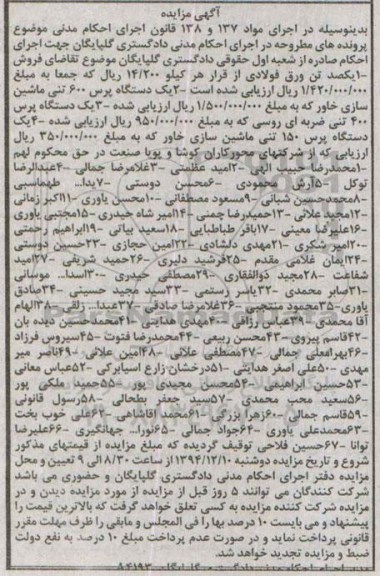 آگهی مزایده
بدینوسیله در اجرای مواد ۱۳۷ و ۱۳۸ قانون اجرای احکام مدنی موضوع
پرونده های مطروحه در اجرای احکام مدنی دادگستری گلپایگان جهت اجرای
احکام صادره از شعبه اول حقوقی دادگستری گلپایگان موضوع تقاضای فروش
۱-یکصد تن ورق فولادی از قرار هر کیلو ۱۴/۲۰۰ ریال که جمعا به مبلغ
۱/۴۲۰/۰۰۰/۰۰۰ ریال ارزیابی شده است ۲-یک دستگاه پرس ۶۰۰ تنی ماشین
سازی خاور که به مبلغ ۱/۵۰۰/۰۰۰/۰۰۰ ریال ارزیابی شده ۳-یک دستگاه پرس
۴۰۰ تنی ضربه ای روسی که به مبلغ ۹۵۰/۰۰۰/۰۰۰ ریال ارزیابی شده ۴-یک
دستگاه پرس ۱۵۰ تنی ماشین سازی خاور که به مبلغ ۳۵۰/۰۰۰/۰۰۰ ریال
ارزیابی که از شرکتهای محورکاران کوشا و پویا صنعت در حق محکوم لهم
۱-محمدرضا حبیب الهی ۲-امید عظمتی ۳-غلامرضا جمالی ۴-عبدالرضا
توکل ۵-آرش محمودی ۶-محسن دوستی ۷-یدا... طهماسبی
۸-محمدحسین شبانی ۹-مسعود مصطفائی ۱۰-محسن یاوری ۱۱-اکبر زمانی
۱۲-مجید علائی ۱۳-حمیدرضا چمنی ۱۴-امیر شاه حیدری ۱۵-مجتبی یاوری
۱۶-علیرضا معینی ۱۷-باقر طباطبایی ۱۸-سعید بیاتی ۱۹-ابراهیم رحمتی
۲۰-امیر شکری ۲۱-مهدی دلشادی ۲۲-امین حجازی ۲۳-حسین دوستی
۲۴-ایمان غلامی مقدم ۲۵-فرشید دلیری ۲۶-حمید شریفی ۲۷-امید
شفاعت ۲۸-مجید ذوالفقاری ۲۹-مصطفی حیدری ۳۰-اسدا... موسائی
۳۱-صابر محمدی ۳۲-یاسر رستمی ۳۳-سید مجید حسینی ۳۴-صادق
یاوری ۳۵-محمود منتجبی ۳۶-غلامرضا صادقی ۳۷-عبدا... ۳۸-الهام
آقا محمدی ۳۹-عباس رزاقی ۴۰-مهدی هدایتی ۴۱-محمدحسین دیده بان
۴۲-قاسم پیروی ۴۳-محسن ربیعی ۴۴-محمدرضا فتوت ۴۵-سیروس فرزاد
۴۶-بهرامعلی جمالی ۴۷-مصطفی علائی ۴۸-امین علائی ۴۹-ناصر میر
مهدی ۵۰-علی اصغر هدایتی ۵۱-درخشان زارع اسیابرکی ۵۲-عباس معانی
۵۳-حسین ابراهیمی ۵۴-محسن مجیدی پور ۵۵-حمید ملکی پور
۵۶-سعید محب محمدی ۵۷-سید جعفر بطحائی ۵۸-رسول قانونی
۵۹-قاسم جمالی ۶۰-زهرا بزرگی ۶۱-محمد آقاشاهی ۶۲-علی خوب بخت
۶۳-محمدعلی یاوری ۶۴-جواد جمالی ۶۵-نورا... جهانگیری ۶۶-علیرضا
توانا ۶۷-حسین فلاحی توقیف گردیده که مبلغ مزایده از قیمتهای مذکور
شروع و تاریخ مزایده دوشنبه ۱۳۹۴/۱۲/۱۰ از ساعت ۸/۳۰ الی ۹ تعیین و محل
مزایده دفتر اجرای احکام مدنی دادگستری گلپایگان و حضوری می باشد
شرکت کنندگان می توانند ۵ روز قبل از مزایده از مورد مزایده دیدن و در
مزایده شرکت کننده مزایده به کسی تعلق خواهد گرفت که بالاترین قیمت را
پیشنهاد و می بایست ۱۰ درصد بها را فی المجلس و مابقی را ظرف مهلت مقرر
قانونی پرداخت نماید و در صورت عدم پرداخت مبلغ ۱۰ درصد به نفع دولت
ضبط و مزایده تجدید خواهد شد.